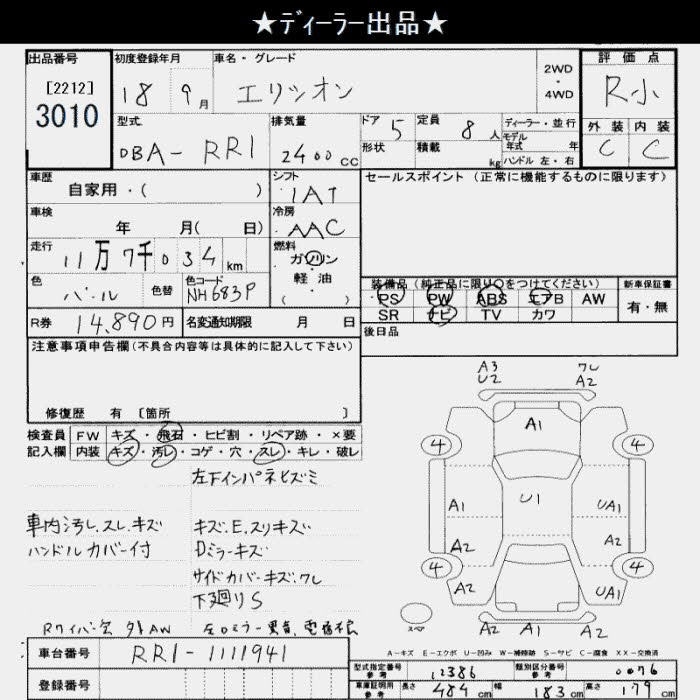 ★ディーラー出品★
出品番号
[2212]
3010
初度登録年月
18 9月
車名・グレード
エリシオン
2WD
・
4WD
評価点
R小
型式
DBA- RR1
排気量
2400cc
ドア 5
形状
定員 8人
積載 kg
ディーラー・並行
モデル
年式 年
ハンドル 左・右
外装 内装
C C
車歴
自家用・( )
シフト
IAT
セールスポイント(正常に機能するものに限ります)
車検
年 月( 日)
冷房
AAC
走行
11万7千034km
燃料
ガソリン
・
軽油
( ・ )
色
パール
色替
色コード
NH683P
装備品(純正品に限り○をつけてください)
PS PW ABS エアB AW
SR ナビ TV カワ
新車保証書
有・無
R券 14,890円
名変通知期限 月 日
後日品
注意事項申告欄(不具合内容等は具体的に記入して下さい)
修復歴 有 [箇所 ]
検査員
記入欄
FW キズ・飛石・ヒビ割・リペア跡・×要
内装 キズ・汚レ・コゲ・穴・スレ・キレ・破レ
左下インパネヒズミ
車内汚レ.スレ.キズ
ハンドルカバー付
キズ.E.スリキズ
Dミラーキズ
サイドカバーキズ.ワレ
下廻りS
A3
U2
ワレ
A2
A1
4 4
A1 U1 UA1
A2 A2
4 4
A2 UA1
A2 A1 A2
スペア
A-キズ E-エクボ U-凹み W-補修跡 S-サビ C-腐食 XX-交換済
車台番号 RR1-1111941
登録番号
型式指定番号
参考
12386
類別区分番号
参考
0076
車庫証明用
参考
長さ 484cm
幅 183cm
高さ 179cm